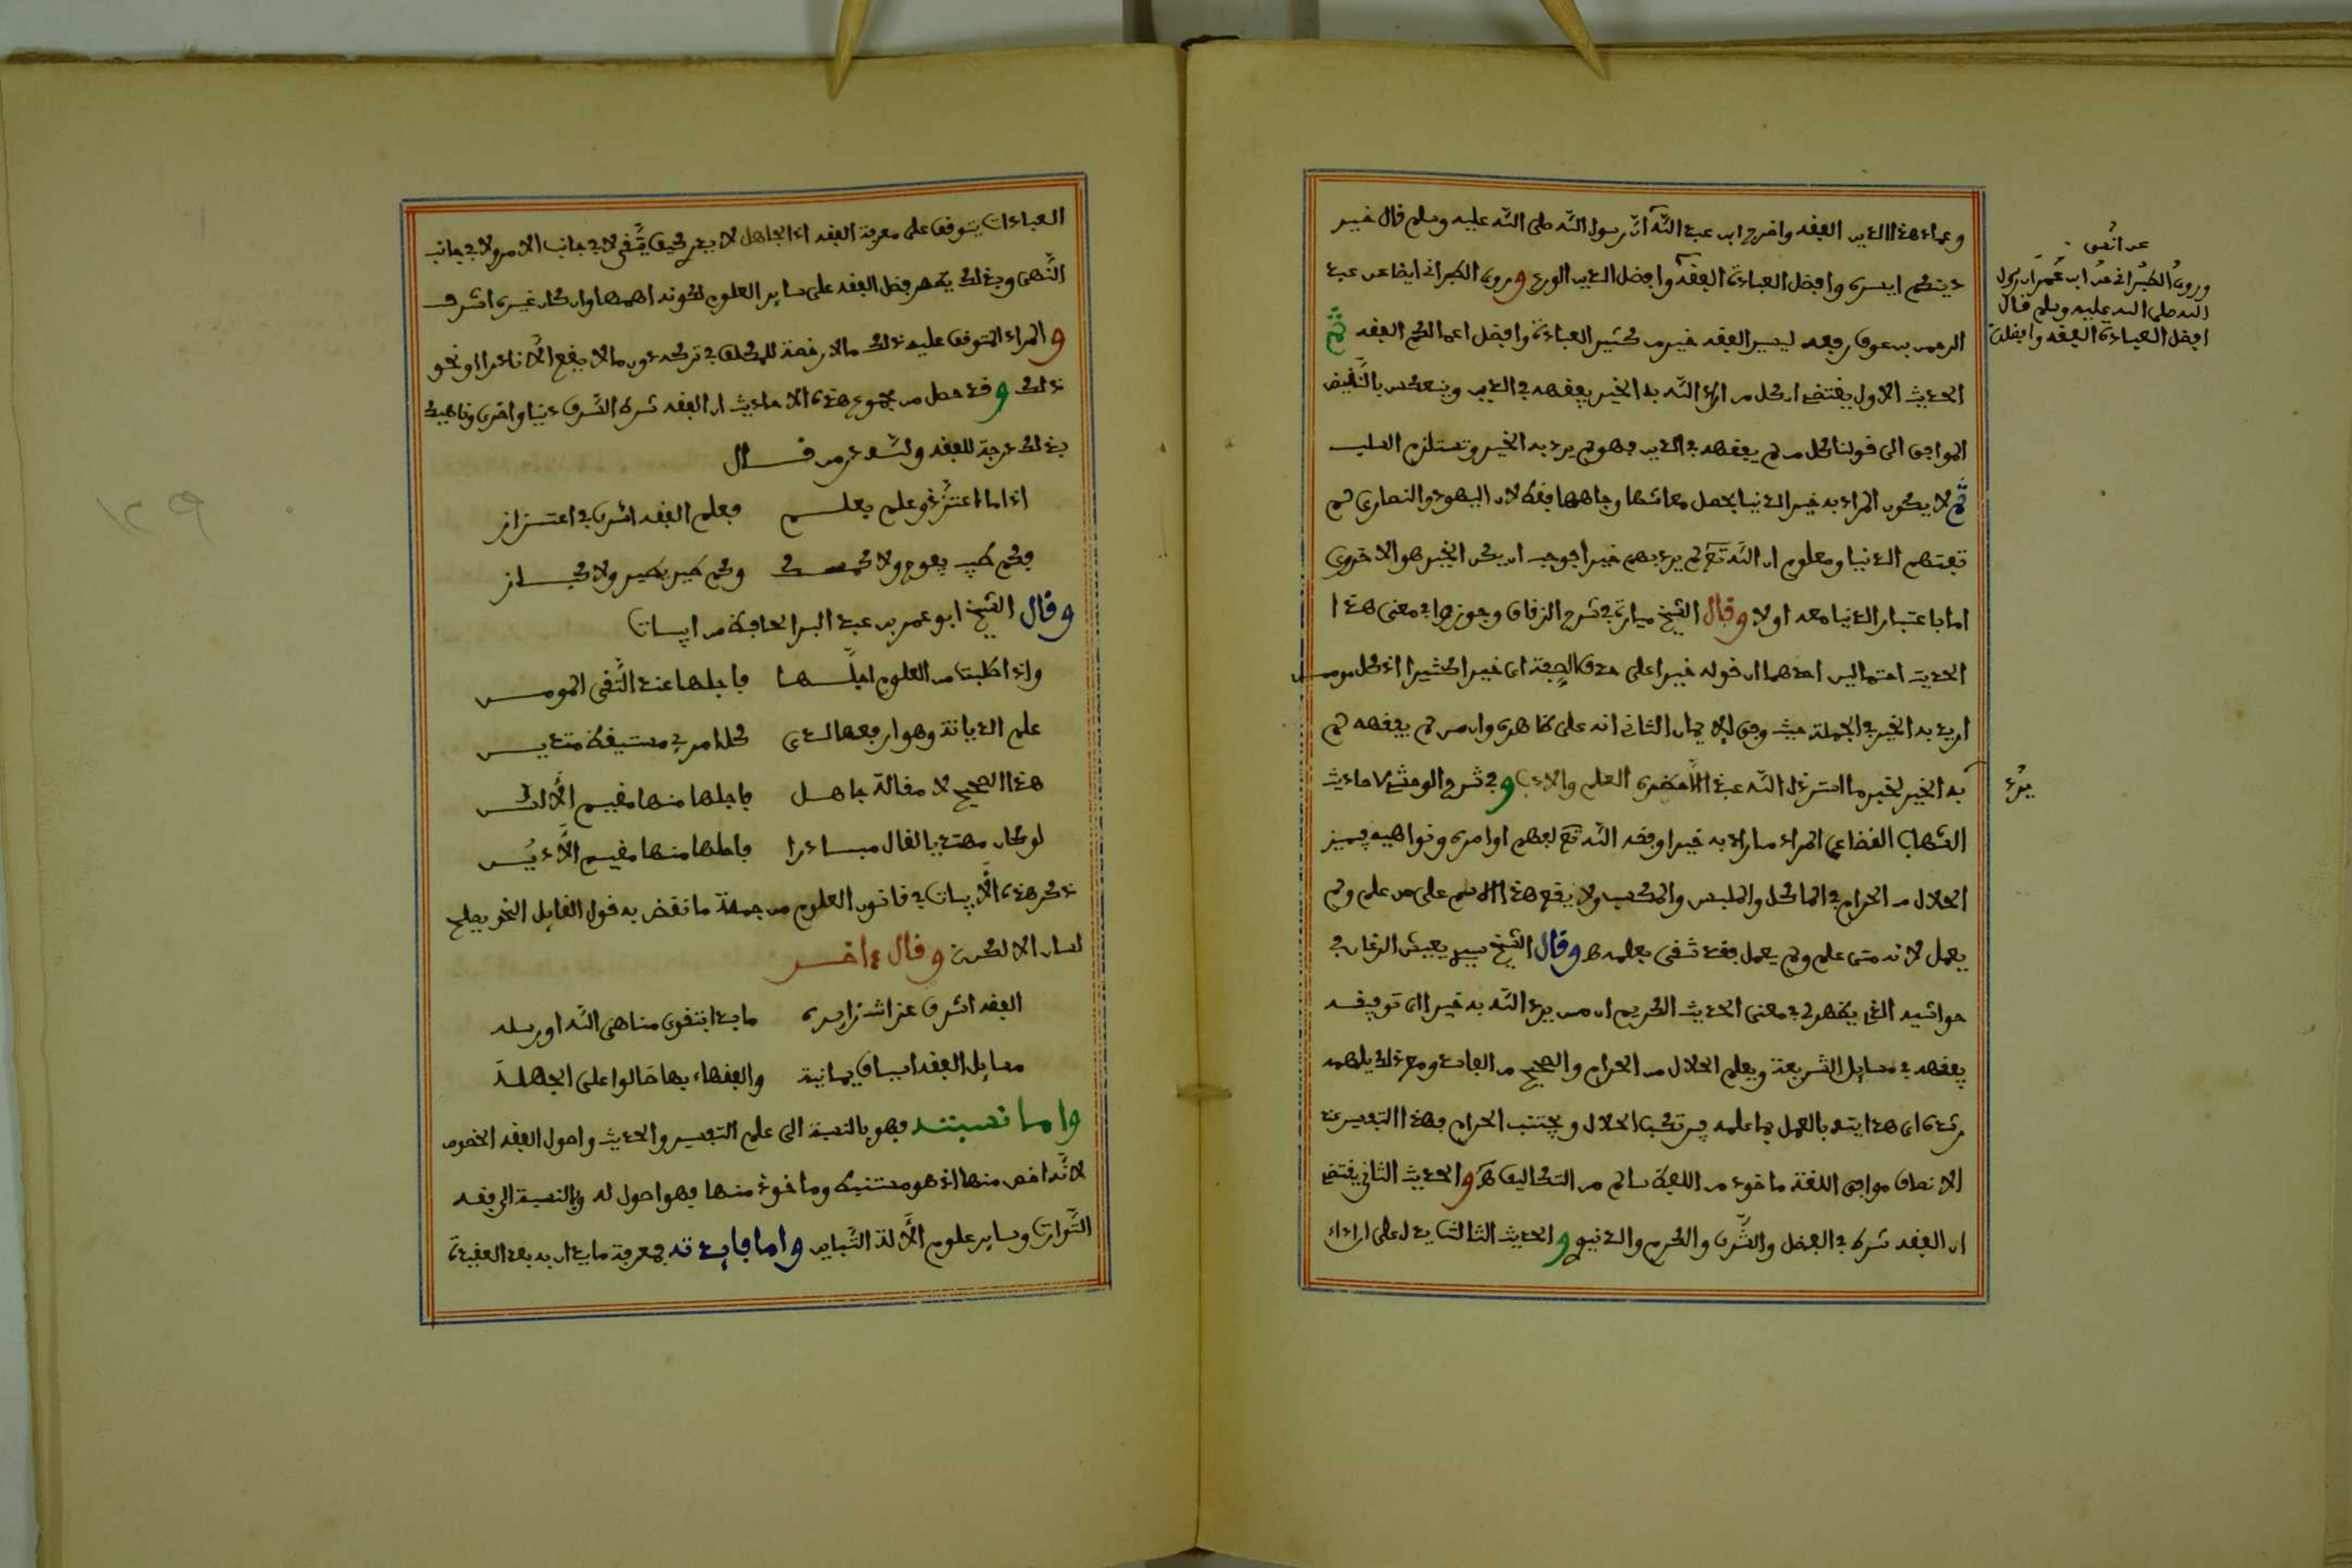 وعماد هذا الدين الفقه واخرج ابن عبد الله ان رسول الله صلى الله عليه وسلم قال خير
دينكم ايسره وافضل العبادة الفقه وافضل الدين الورع وروى الطبراني ايضا عن عبد
الرحمن بن عوف رفعه ليسير الفقه خير من كثير العبادة وافضل اعمالكم الفقه ثم
الحديث الاول يقتضي ان كل من اراد الله به الخير يفقهه في الدين وينعكس بالنقيض
الموافق الى قولنا كل من لم يفقهه في الدين فهو لم يرد به الخير وتستلزم السلب
ثم لا يكون المراد به خير الدنيا بحصل معاشها وجاهها فقط لان اليهود والنصارى لم
تفتهم الدنيا ومعلوم ان الله تع لم يرد بهم خيرا فوجب ان يكن الخير هو الاخروي
اما باعتبار الدنيا معه اولا وقال الشيخ ميارة في شرح الزقاق وجوزوا في معنى هذا
الحديث احتمالين احدهما ان قوله خيرا على حذف الصفة اي خيرا كثيرا اذ كل مومن
اريد به الخير في الجملة حيث وفق للايمان الثاني انه على ظاهره وان من لم يفقهه لم
به الخير لخير ما استرذل الله عبدا الا حضره العلم والادب وفي شرح الوحشي لاحاديث
الشهاب القضاعي المراد من اراد به خيرا وفقه الله تع لفهم اوامره ونواهيه يميز
الحلال من الحرام في الماكل والملبس والمكسب ولا يقع هذا الاسم على من علم ولم
يعمل لانه متى علم ولم يعمل فقد شقي بعلمه ط وقال الشيخ يعيش الرغاي في
حواشيه الذي يظهر لي في معنى الحديث الكريم ان من يرد الله به خيرا اى توفيقه
يفقهه في مسايل الشريعة ويعلم الحلال من الحرام والصحيح من الفاسد ومع ذلك يلهمه
رشده اي هدايته بالعمل بما علمه فيرتكب الحلال ويجتنب الحرام وهذا التفسير عند
الانصاف موافق اللغة ماخوذ من اللفظ سالم من التكاليف ط والحديث الثاني يقتضي
ان الفقه شرط في الفضل والشرف والكرم والدنيو والحديث الثالث يدل على ان اداء
عن انس
وروى الطبراني عن ابن عمر ان رسول
الله صلى الله عليه وسلم قال
افضل العبادة الفقه وافضل
يرد
العبادات يتوقف على معرفة الفقه اذ الجاهل لا يعرف كيف يتقي لا في جانب الامر ولا في جانب
النهي وبذلك يظهر فضل الفقه على ساير العلوم لكونه اهمها وان كان غيره اشرف
والمراد المتوقف عليه ذلك مالا رخصة للمكلف في تركه دون مالا يقع الا نادرا او نحو
ذلك وقد حصل من مجموع هذه الاحاديث ان الفقه شرط الشرف دنيا واخرى وناهيك
بذلك درجة للفقه ولله در من قال
اذا ما اعتز ذو علم بعلم فعلم الفقه اشرف في اعتزاز
فكم طيب يفوح ولا كمسك وكم طير يطير ولا كباز
وقال الشيخ ابو عمر بن عبد البر الحافظ من ابيات
واذا طلبت من العلوم اجلها فاجلها عند التقي المومن
علم الديانة وهو ارفعها لدى كل امرئ مستيقظ متدين
هذا الصحيح لا مقالة جاهل فاجلها منها مقيم الالسن
لو كان مهتديا لقال مبادرا فاجلها منها مقيم الادين
ذكر هذه الابيات في قانون العلوم من جملة ما نقض به قول القايل النحو يصلح
لسان الالكن وقال ءاخر
الفقه اشرف عز انت زايده
مسايل الفقه اسياف يمانية والفقهاء بها صالوا على الجهلة
واما نسبته فهو بالنسبة الى علم التفسير والحديث واصول الفقه الخصوص
لانه اخص منها اذ هو مستنبط وماخوذ منها فهو اصول له وبالنسبة الى فقه
التوراة وساير علوم الالة التباين واما فايدته فمعرفة ما يدان به بعد العقيدة